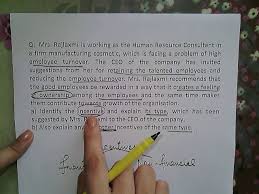 Q. Mrs. Rajlaxmi is working as the Human Resource Consultant in
a firm manufacturing cosmetic, which is facing a problem of high
employee turnover. The CEO of the company has invited
suggestions from her for retaining the talented employees and
reducing the employee turnover. Mrs. Rajlaxmi recommends that
the good employees be rewarded in a way that it creates a feeling
of ownership among the employees and at the same time makes
them contribute towards growth of the organisation.
a) Identify the incentive and explain its type, which has been
suggested by Mrs Rajlaxmi to the CEO of the company.
b) Also explain any incentives of the same type.
financial